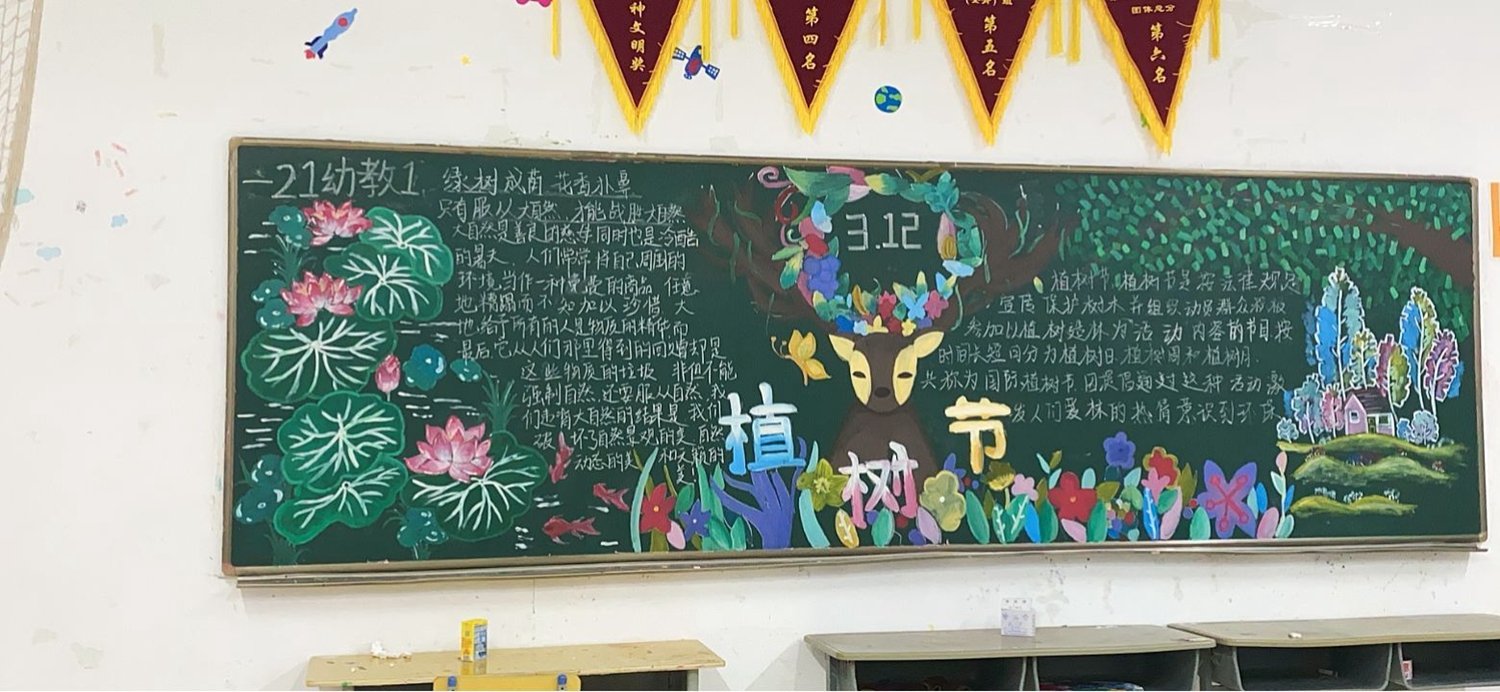 神文明奖
第四名
第五名
团体总分
第六名
21幼教1
绿树成荫 花香
只有服从大自然,才能战胜大自然
大自然是善良的慈母同时也是冷酷
的 人们常常将自己周围的
环境当作一种 的商品 任意
地糟蹋而不知加以 大
地给予所有的人是物质的精华而
最后它从人们那里得到的回赠却是
这些物质的垃圾 非但不能
强制自然 还要服从自然 我
们 有大自然的结果是 我们
破 坏了自然景观的美 自然
动态的美 和 的
美
3.12
植
树
节
植树节,植树节是
宣传保护树木 并组织动员群众积极
参加以植树造林为活动内容的节日按
时间长短可分为植树日 植树周和植树月
共称为国际植树节 过这种活动 激
发人们爱林的热情 意识到环